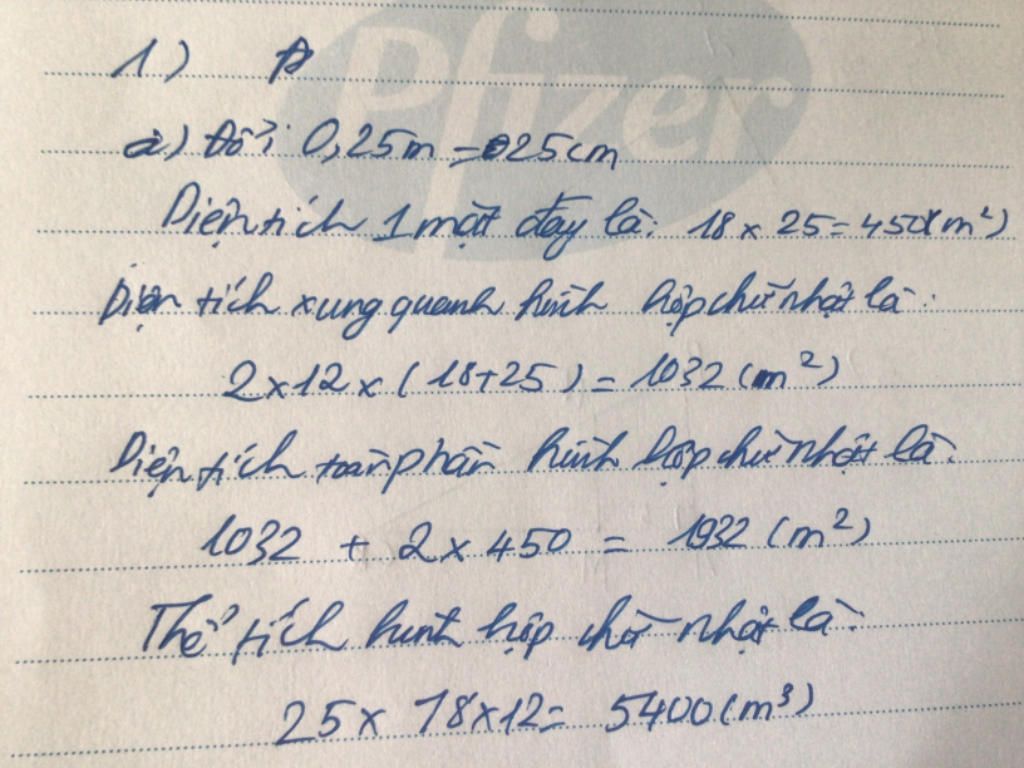 1)
Pfizer
a) Đổi 0,25m = 25cm
Diện tích 1 mặt đáy là: 18 x 25 = 450(m²)
Diện tích xung quanh hình hộp chữ nhật là:
2 x 12 x (18+25) = 1032 (m²)
Diện tích toàn phần hình hộp chữ nhật là:
1032 + 2 x 450 = 1932 (m²)
Thể tích hình hộp chữ nhật là:
25 x 18 x 12 = 5400 (m³)